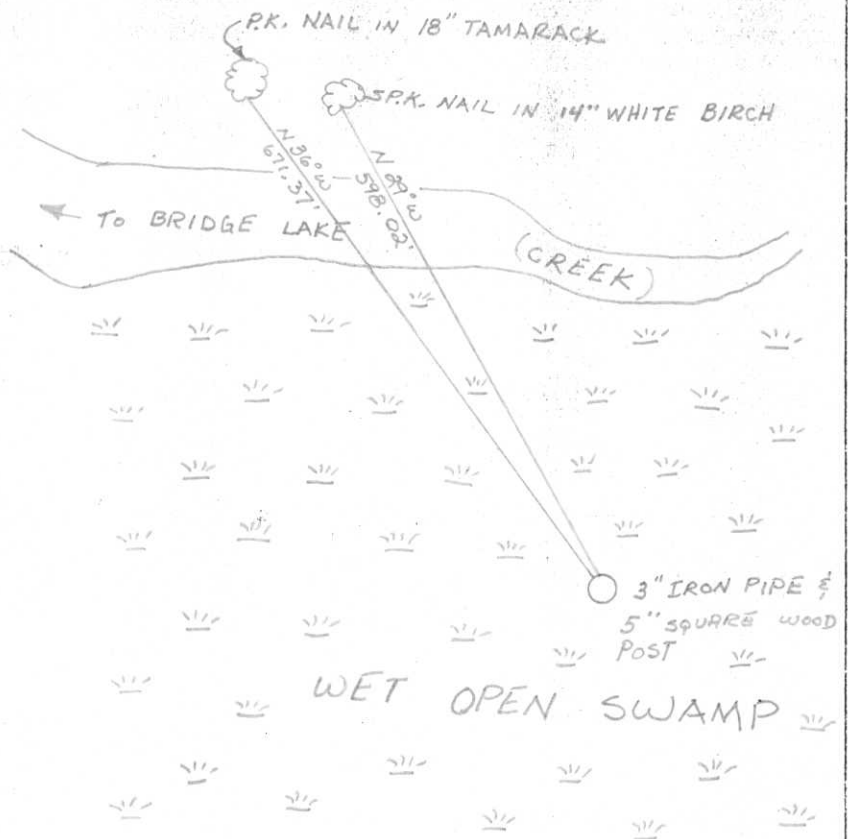 P.K. NAIL IN 18" TAMARACK
P.K. NAIL IN 14" WHITE BIRCH
N 36° W
671.37'
N 29° W
598.02'
TO BRIDGE LAKE
(CREEK)
3" IRON PIPE &
5" SQUARE WOOD
POST
WET OPEN SWAMP